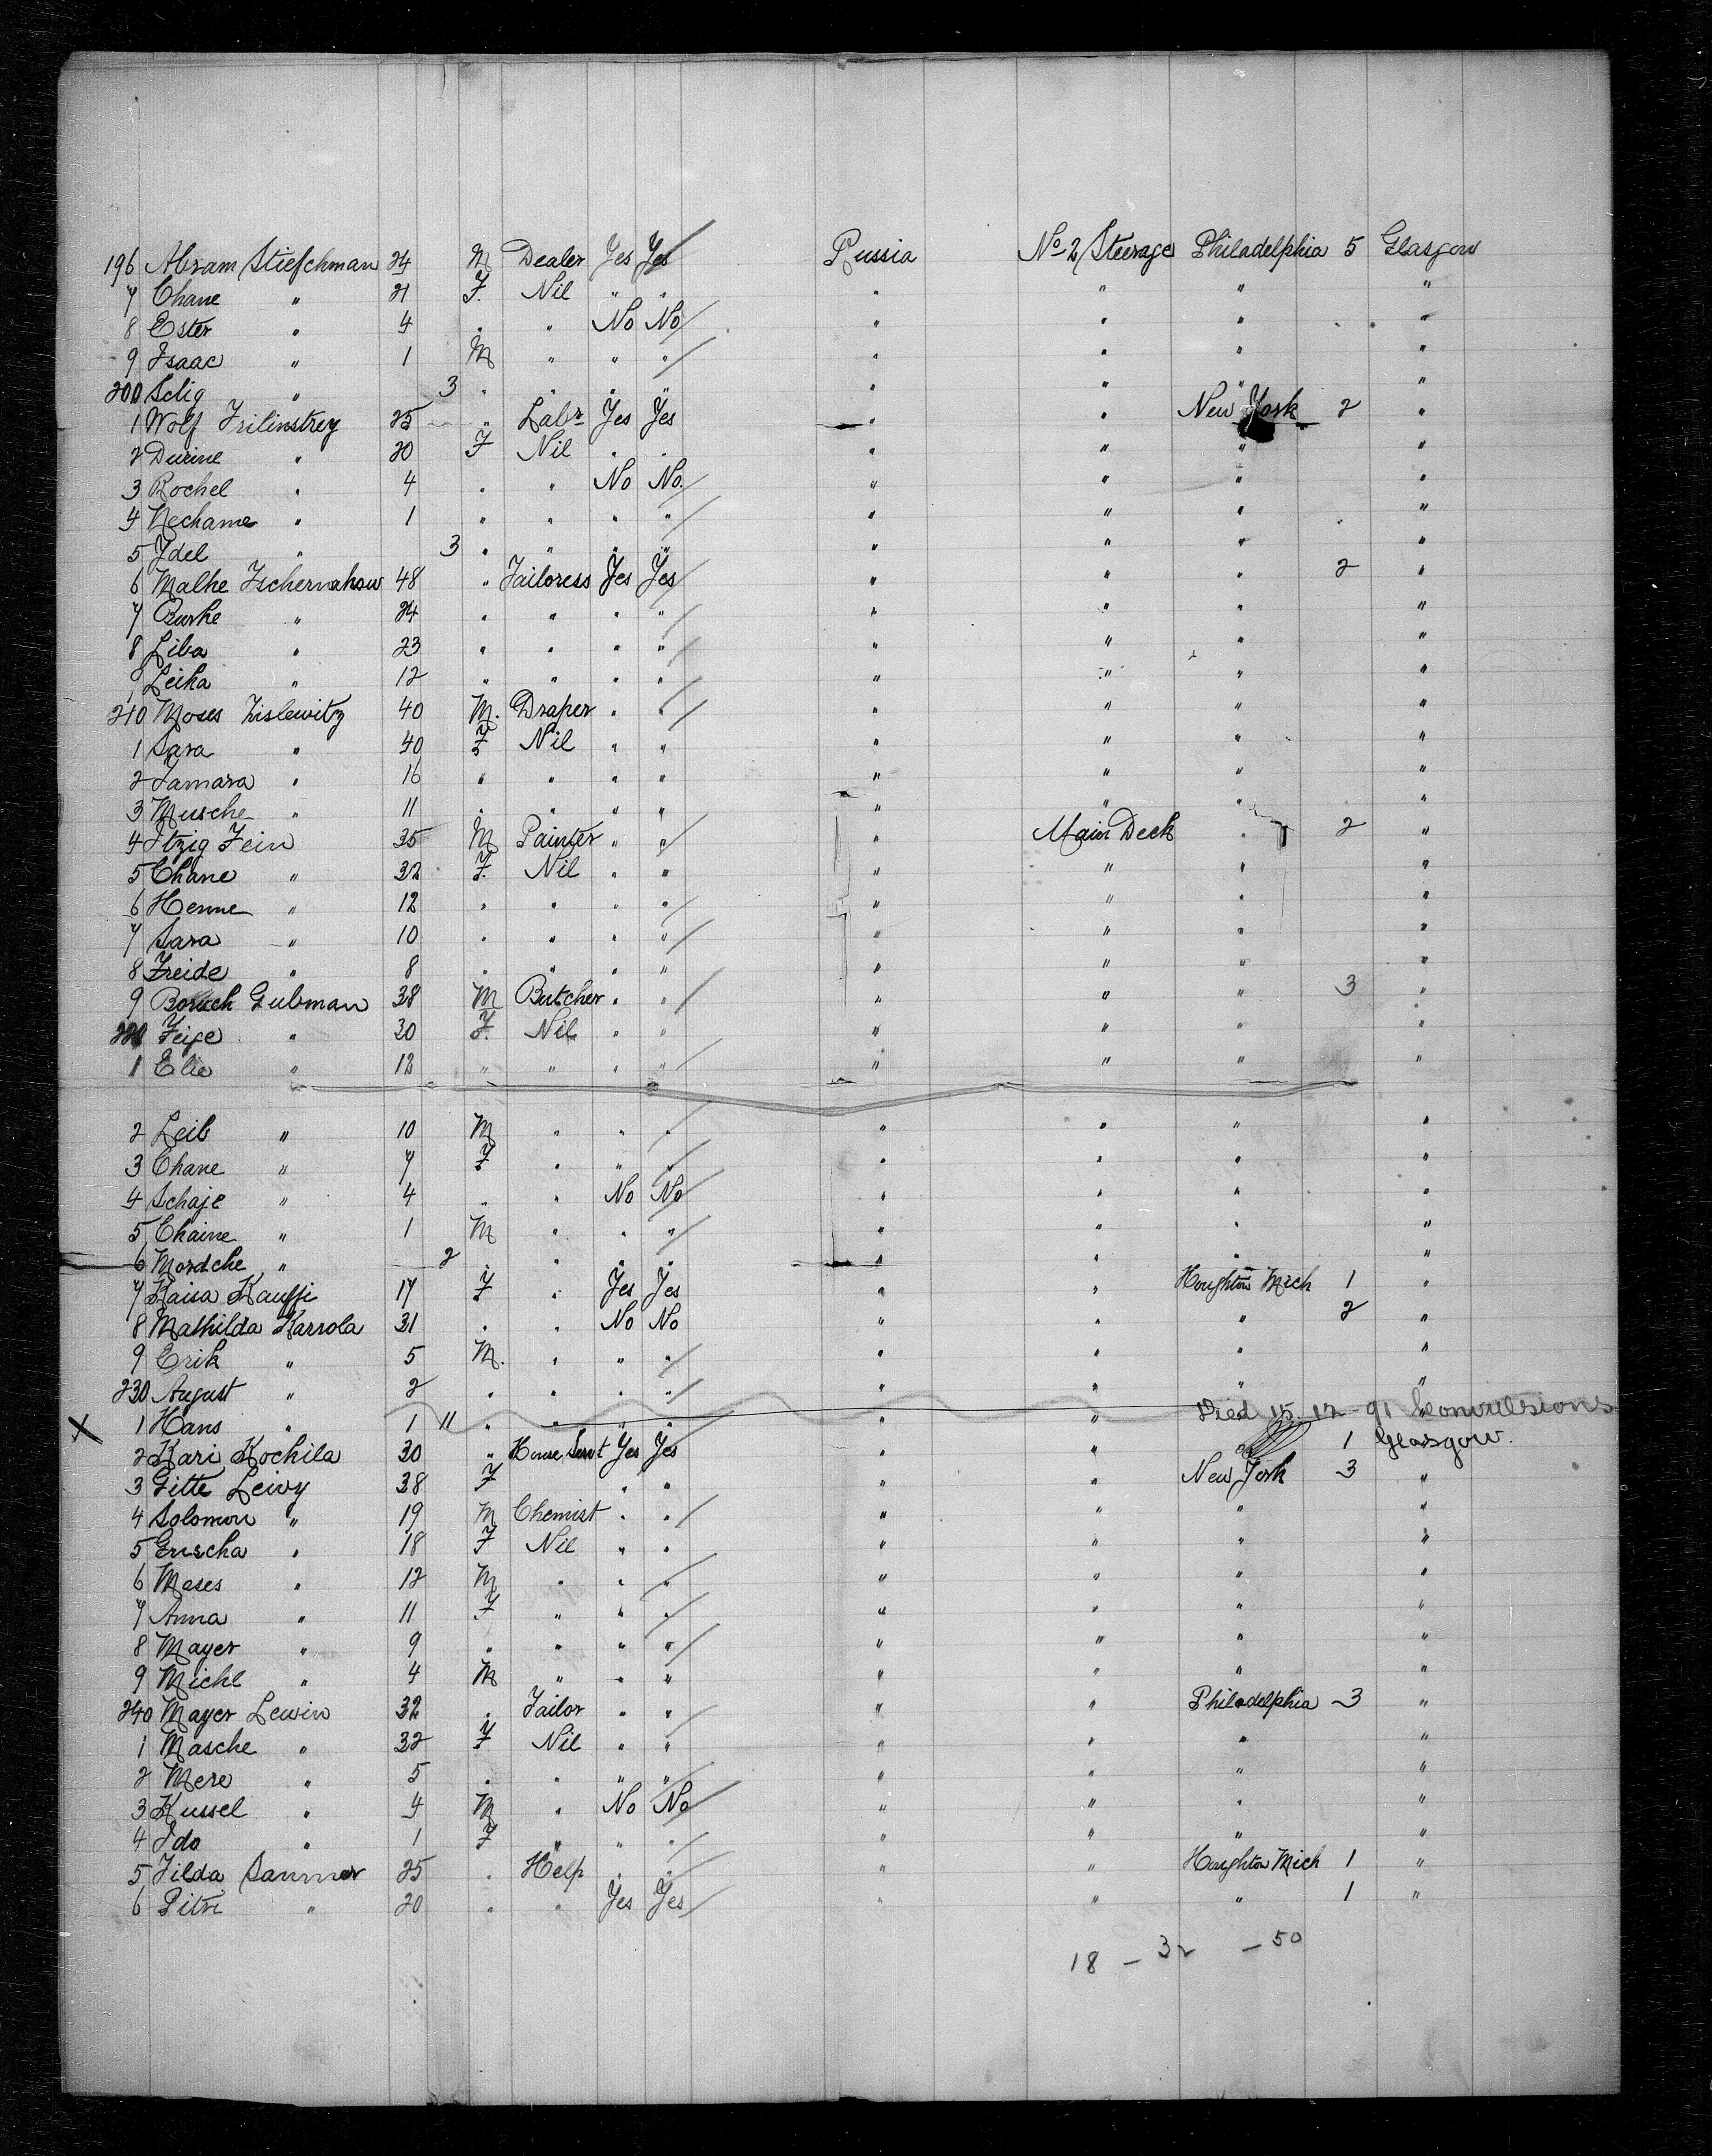 196 Abram Stiefschman 24 M Dealer Yes Yes Russia No 2 Steerage Philadelphia 5 Glasgow
7 Chane " 21 F. Nil " " " " " "
8 Ester " 4 " " No No " " " "
9 Isaac " 1 M " " " " " " "
200 Selig " 3 " " " " " " " "
1 Wolf 25 " Labr Yes Yes " " New York 2 "
2 " 20 F Nil " " " " " "
3 Rochel " 4 " " No No. " " " "
4 Nechame " 1 " " " " " " " "
5 Idel " 3 " " " " " " " "
6 Malke Tschernahow 48 " Tailoress Yes Yes " " " 2 "
7 Burke " 24 " " " " " " " "
8 Liba " 23 " " " " " " " "
9 Leika " 12 " " " " " " " "
210 Moses Zislewitz 40 M. Draper " " " " " "
1 Sara " 40 F Nil " " " " " "
2 Tamara " 16 " " " " " " " "
3 Musche " 11 " " " " " " " "
4 Itzig Fein 35 M Painter " " " Main Deck " 2 "
5 Chane " 32 F. Nil " " " " " "
6 Henne " 12 " " " " " " " "
7 Sara " 10 " " " " " " " "
8 Freide " 8 " " " " " " " "
9 Boruch Gubman 38 M Butcher " " " " " 3 "
220 Feige " 30 F. Nil " " " " " "
1 Elie " 12 " " " " " " " "
2 Leib " 10 M " " " " " " "
3 Chane " 7 F " " " " " " "
4 Schaje " 4 " " No No " " " "
5 Chaine " 1 M " " " " " " "
6 Mordche " 2 " " " " " " " "
7 Kaisa Kauppi 17 F " Yes Yes " " Houghton Mich 1 "
8 Mathilda Karrola 31 " " No No " " " 2 "
9 Erik " 5 M. " " " " " " "
230 August " 2 " " " " " " " "
X 1 Hans " 1 11 " " " " " " Died 15.12-91 Convulsions
2 Kari Kochila 30 " House Servt Yes Yes " " 1 Glasgow.
3 Gitte Leivy 38 F " " " " New York 3 "
4 Solomon " 19 M Chemist " " " " " "
5 " 18 F Nil " " " " " "
6 Moses " 12 M " " " " " " "
7 Anna " 11 F " " " " " " "
8 Mayer " 9 " " " " " " " "
9 Michl " 4 M " " " " " " "
240 Mayer Lewin 32 " Tailor " " " " Philadelphia 3 "
1 Masche " 32 F Nil " " " " " "
2 Mere " 5 " " " " " " " "
3 Kussel " 4 M " No No " " " "
4 Ida " 1 F " " " " " " "
5 Tilda Sanmar 25 " Help " " " " Houghton Mich 1 "
6 " 20 " " Yes Yes " " " 1 "
18 - 32 - 50